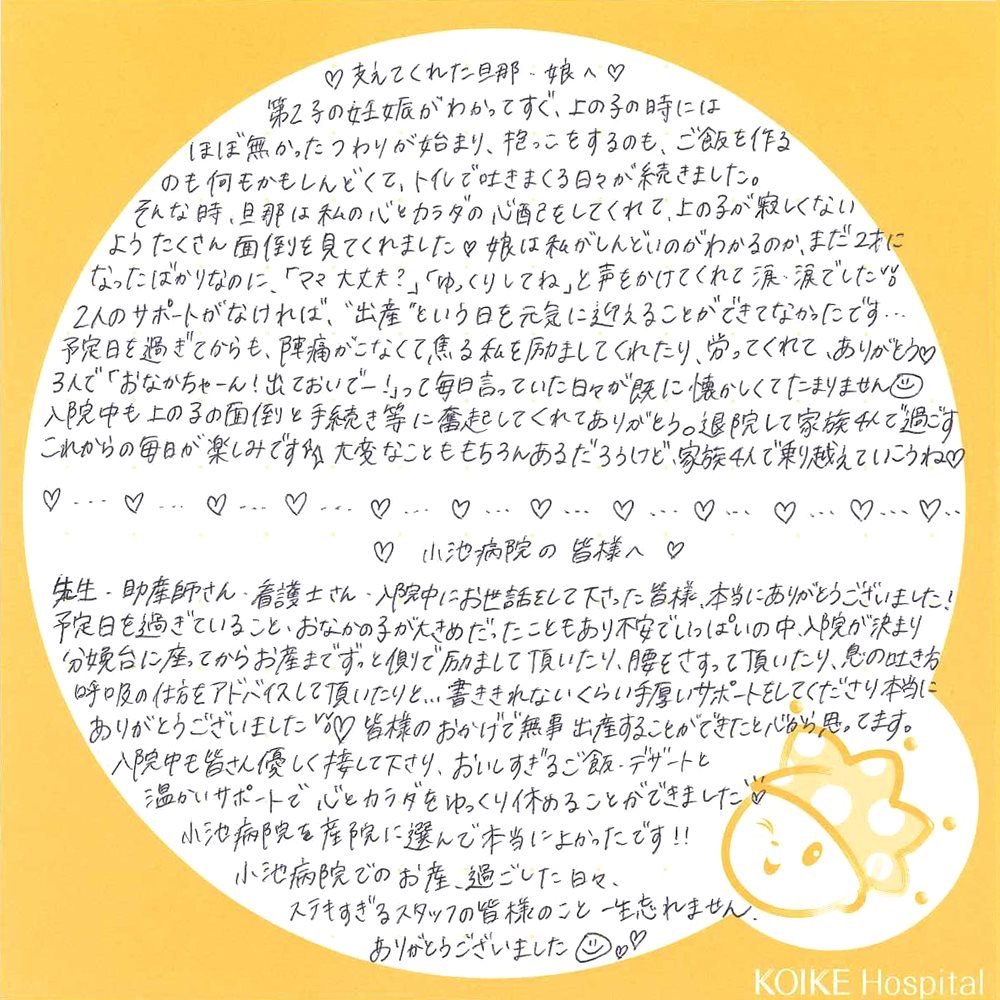 ♡ 支えてくれた旦那・娘へ ♡
第2子の妊娠がわかってすぐ、上の子の時には
ほぼ無かったつわりが始まり、抱っこをするのも、ご飯を作る
のも何もかもしんどくて、トイレで吐きまくる日々が続きました。
そんな時、旦那は私の心とカラダの心配をしてくれて、上の子が寂しくない
ようたくさん面倒を見てくれました♡ 娘は私がしんどいのがわかるのか、まだ2才に
なったばかりなのに、「ママ大丈夫?」「ゆっくりしてね」と声をかけてくれて涙・涙でした
2人のサポートがなければ、"出産"という日を元気に迎えることができてなかったです…
予定日を過ぎてからも、陣痛がこなくて焦る私を励ましてくれたり、労ってくれて、ありがとう♡
3人で「おなかちゃーん!出ておいでー!」って毎日言っていた日々が既に懐かしくてたまりません☺
入院中も上の子の面倒と手続き等に奮起してくれてありがとう。退院して家族4人で過ごす
これからの毎日が楽しみです 大変なことももちろんあるだろうけど、家族4人で乗り越えていこうね♡
♡…♡…♡…♡…♡…♡…♡…♡…♡…♡…♡…♡..
♡ 小池病院の皆様へ ♡
先生・助産師さん・看護士さん・入院中にお世話をして下さった皆様、本当にありがとうございました!
予定日を過ぎていること、おなかの子が大きめだったこともあり不安でいっぱいの中、入院が決まり
分娩台に座ってからお産までずっと側で励まして頂いたり、腰をさすって頂いたり、息の吐き方
呼吸の仕方をアドバイスして頂いたりと…書ききれないくらい手厚いサポートをしてくださり本当に
ありがとうございました♡ 皆様のおかげで無事出産することができたと心から思ってます。
入院中も皆さん優しく接して下さり、おいしすぎるご飯・デザートと
温かいサポートで心とカラダをゆっくり休めることができました♡
小池病院を産院に選んで本当によかったです!!
小池病院でのお産、過ごした日々、
ステキすぎるスタッフの皆様のこと一生忘れません.
ありがとうございました☺♡♡
KOIKE Hospital